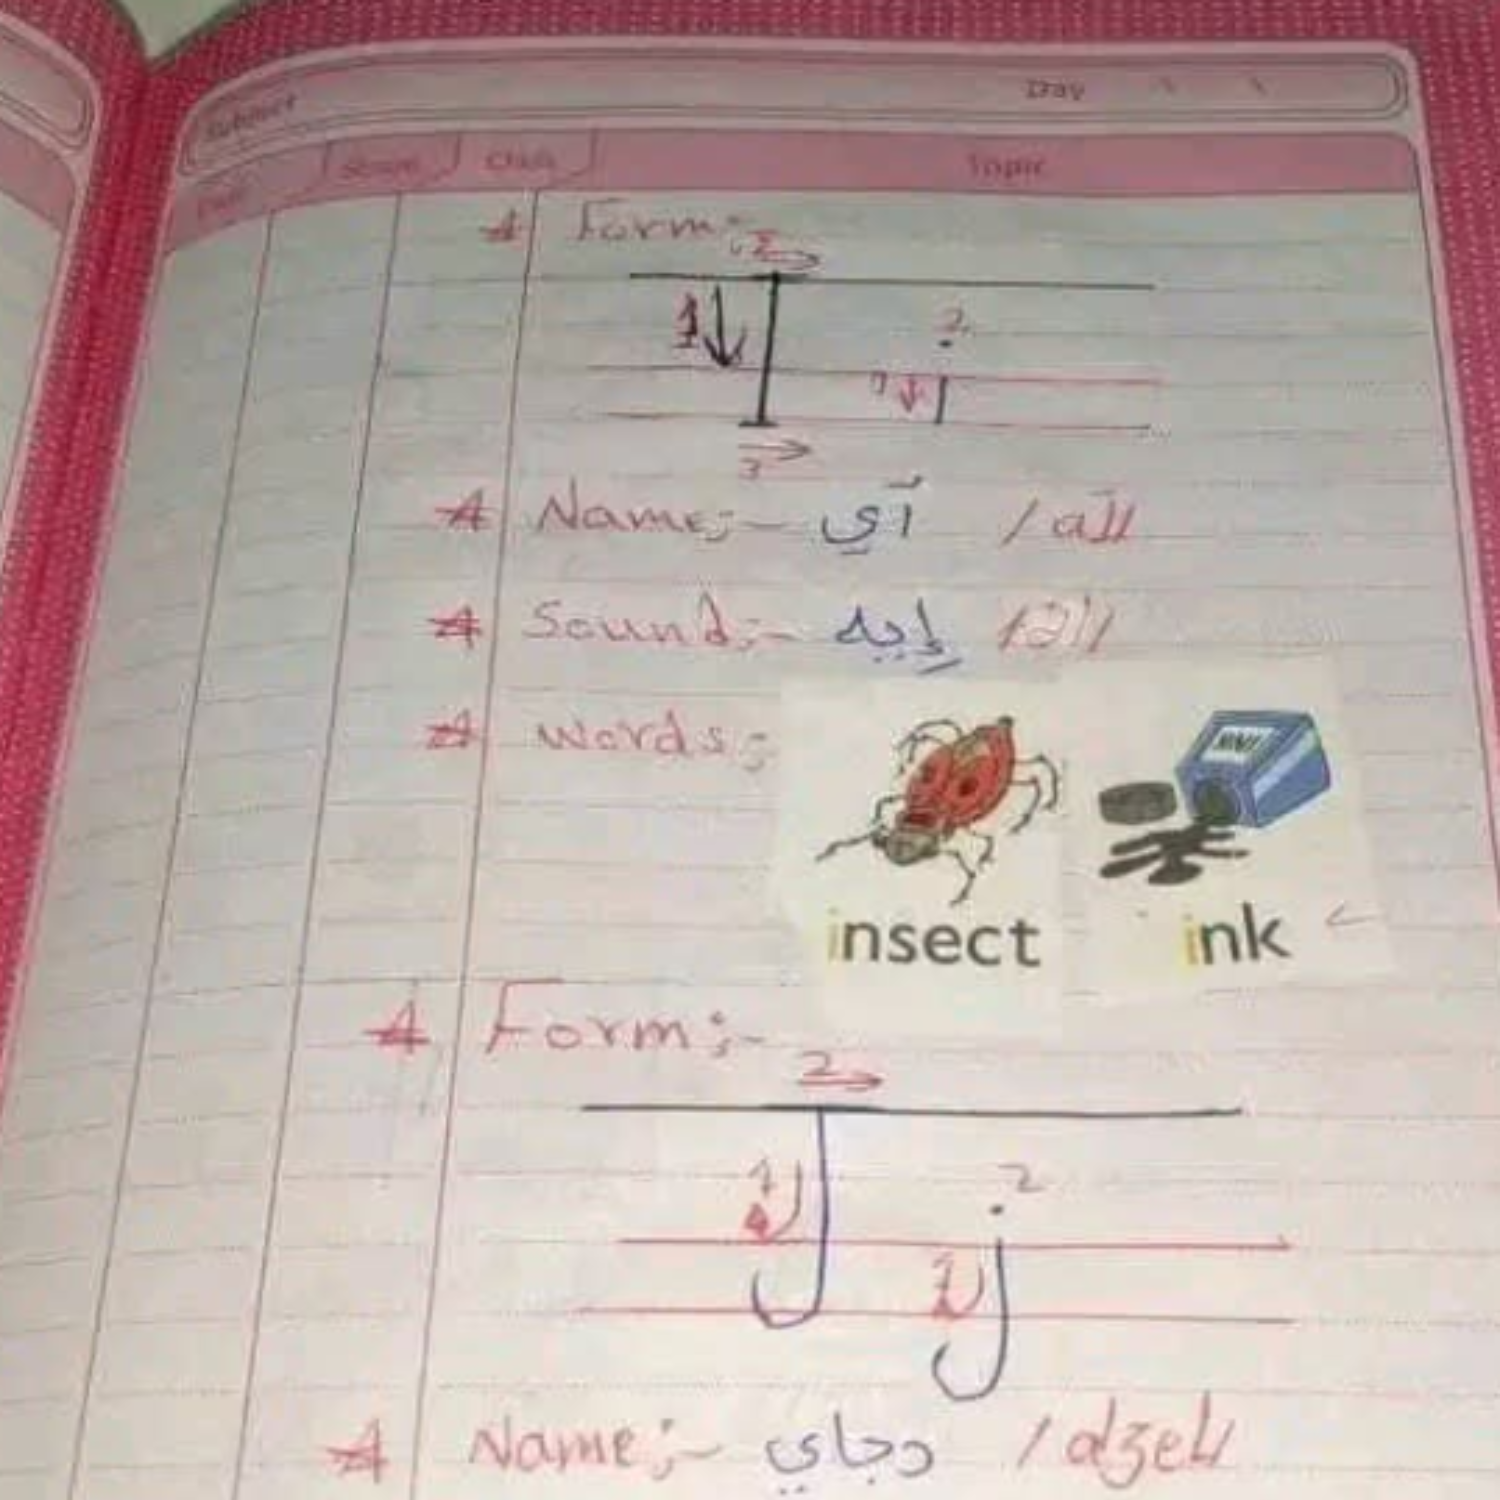 Subject Day / /
Date Stage Class Topic
Form:-
2
1 2
1
3
Name:- آي /aI/
Sound:- إيه /I/
Words:-
INK
insect ink
Form:-
2
1 2
1
Name:- دجاي /dʒeI/